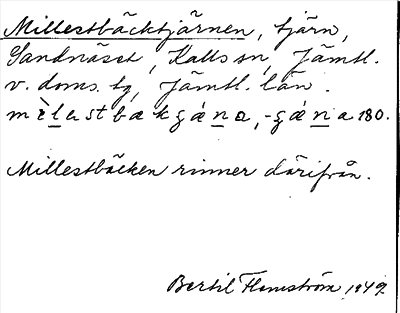 Millestbäcktjärnen, tjärn,
Sandnäset, Kalls sn, Jämtl.
v. doms. tg, Jämtl. län.
180.
Millestbäcken rinner därifrån.
Bertil Flemström 1949.